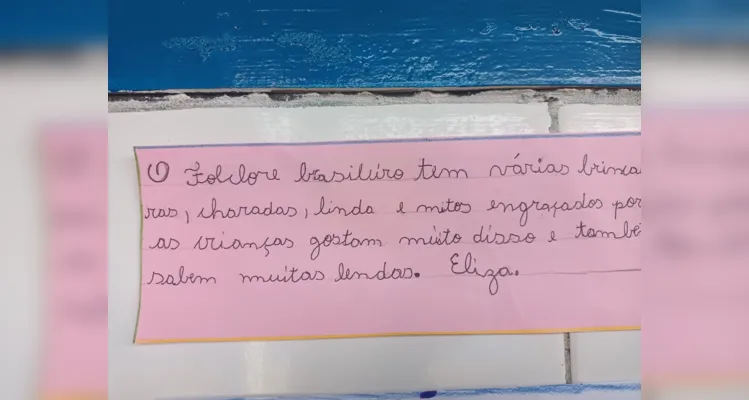 O Folclore brasiliiro tem várias brinca
ras, charadas, linda e mitos engraçados por
as crianças gostam muito disso e tambe
sabem muitas lendas. Eliza.